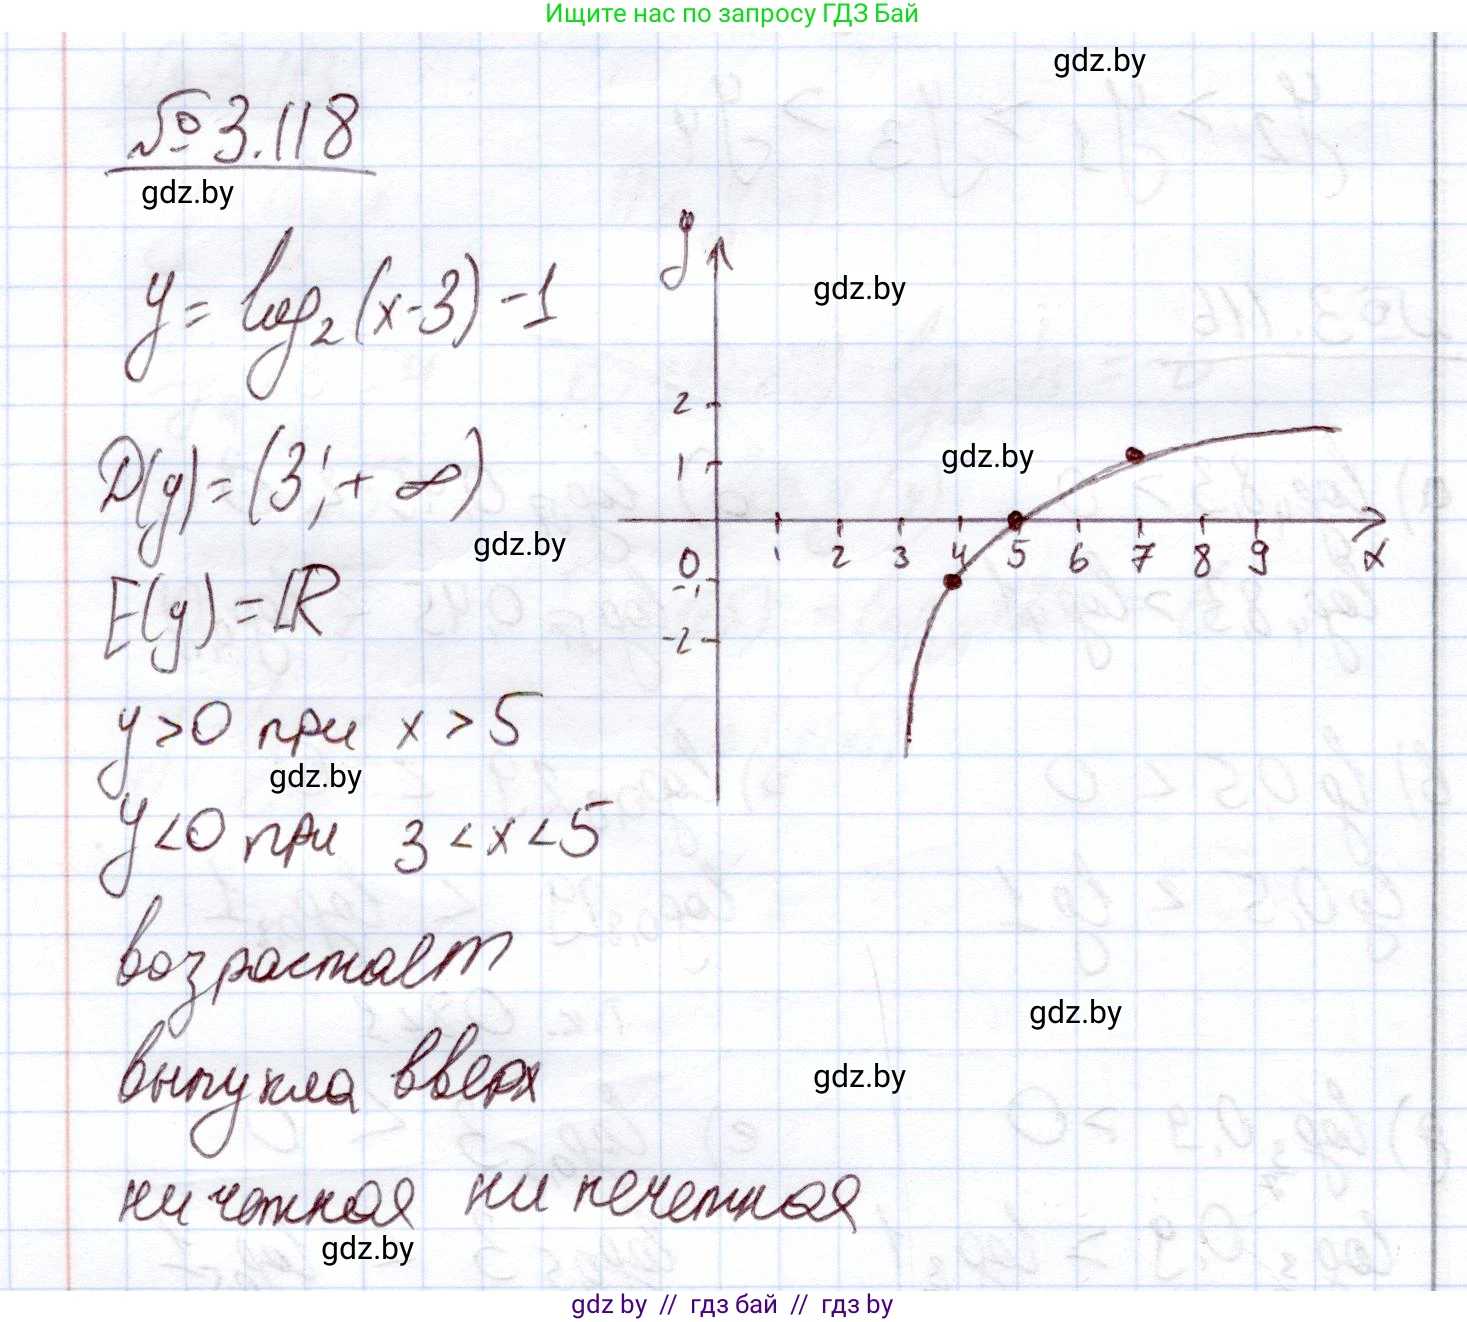 Ищите нас по запросу ГДЗ Бай
gdz.by
№ 3.118
gdz.by
y = log₂(x-3) -1
D(y) = (3; + ∞)
gdz.by
E(y) = ℝ
y>0 при x > 5
gdz.by
y<0 при 3 < x < 5
возрастает
выпукла вверх
ни четная ни нечетная
gdz.by
y
gdz.by
2
1
gdz.by
0 1 2 3 4 5 6 7 8 9 x
-1
-2
gdz.by
gdz.by
gdz by // гдз бай // гдз by